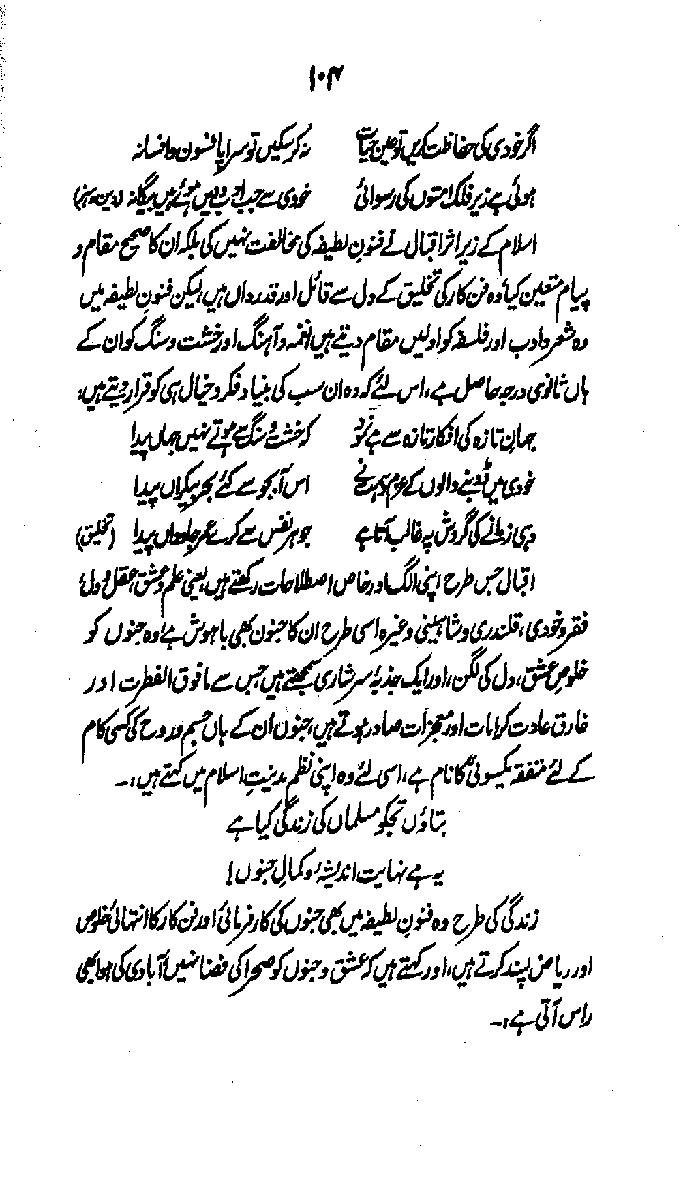 ۱۰۴
اگر خودی کی حفاظت کریں تو عین حیات نہ کر سکیں تو سراپا فسون و افسانہ
ہوئی ہے زیر فلک امتوں کی رسوائی خودی سے جب ادب و دیں ہوئے ہیں بیگانہ (دین و ہنر)
اسلام کے زیر اثر اقبال نے فنونِ لطیفہ کی مخالفت نہیں کی بلکہ ان کا صحیح مقام و
پیام متعین کیا وہ فن کار کی تخلیق کے دل سے قائل اور قدرداں ہیں، لیکن فنونِ لطیفہ میں
وہ شعر و ادب اور فلسفہ کو اولیں مقام دیتے ہیں نغمہ و آہنگ اور خشت و سنگ کو ان کے
ہاں ثانوی درجہ حاصل ہے، اس لئے کہ وہ ان سب کی بنیاد فکر و خیال ہی کو قرار دیتے ہیں،
جہانِ تازہ کی افکار تازہ سے ہے نمود کہ خشت و سنگ سے ہوتے نہیں جہاں پیدا
خودی میں ڈوبنے والوں کے عزم و ہمت نے اس آبجو سے کئے بحرِ بیکراں پیدا
وہی زمانے کی گردش پہ غالب آتا ہے جو ہر نفس سے کرے عمرِ جاوداں پیدا (تخلیق)
اقبال جس طرح اپنی الگ اور خاص اصطلاحات رکھتے ہیں یعنی علم و عشق، عقل و دل،
فقر و خودی، قلندری و شاہینی وغیرہ اسی طرح ان کا جنون بھی باہوش ہے، وہ جنوں کو
خلوصِ عشق، دل کی لگن، اور ایک جذبۂ سرشاری سمجھتے ہیں جس سے مافوق الفطرت اور
خارق عادت کرامات اور معجزات صادر ہوتے ہیں، جنوں ان کے ہاں جسم و روح کی کسی کام
کے لئے متفقہ یکسوئی کا نام ہے، اسی لئے وہ اپنی نظم مدنیتِ اسلام میں کہتے ہیں:۔
بتاؤں تجھ کو مسلماں کی زندگی کیا ہے
یہ ہے نہایت اندیشہ و کمالِ جنوں!
زندگی کی طرح وہ فنونِ لطیفہ میں بھی جنوں کی کارفرمائی اور فن کار کا انتہائی خلوص
اور ریاض پسند کرتے ہیں، اور کہتے ہیں کہ عشق و جنوں کو صحرا کی فضا نہیں آبادی کی ہوا بھی
راس آتی ہے:۔